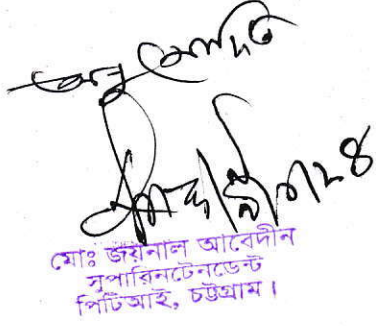 অনুমোদিত
মোঃ জয়নাল আবেদীন
সুপারিনটেনডেন্ট
পিটিআই, চট্টগ্রাম।